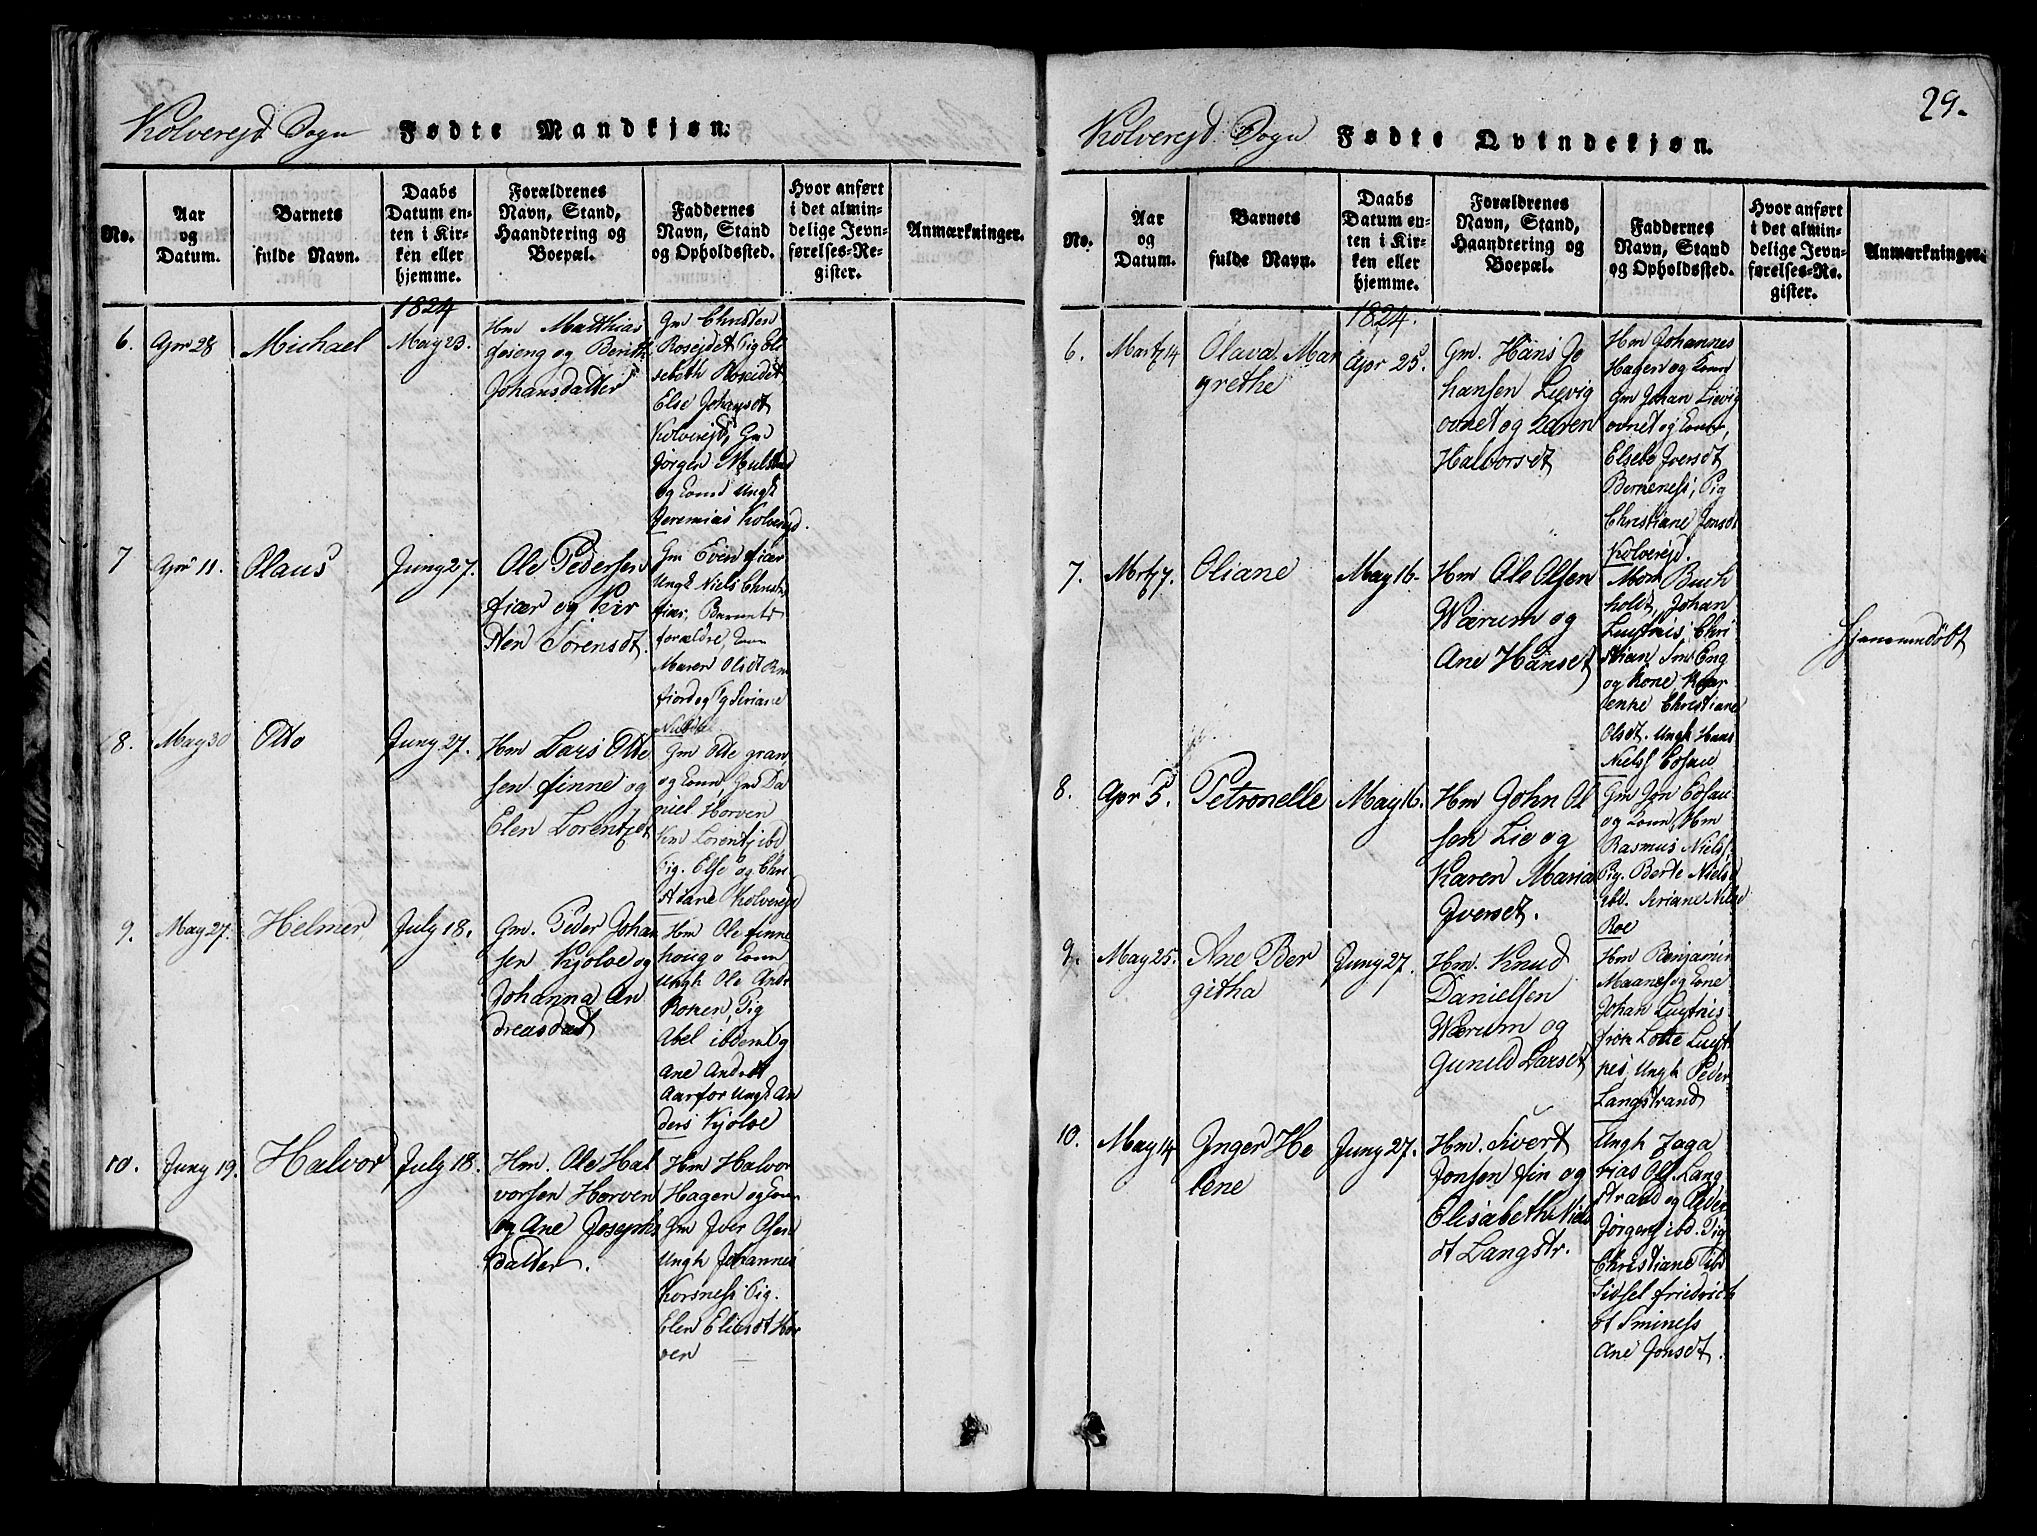 Kolverejd Sogn Fødte Mandkjøn.
No.
Aar og Datum.
Barnets fulde Navn.
Daabs Datum enten i Kirken eller hjemme.
Forældrenes Navn, Stand, Haandtering og Boepæl.
Faddernes Navn, Stand og Opholdssted.
Hvor anført i det almindelige Jevnførelses-Register.
Anmærkninger.
1824
6.
Apr 28
Michael
May 23.
Hm Matthias
føieng og Berith
Johansdatter
Gm Christen
Roseidet Pig El
sebeth Roseidet
Else Johansdt
Kolverejd, Gm
Jørgen Mulstad
og Kone Ungk
Jeremias Kolverejd.
7
Apr 11.
Olaus
Juny 27.
Ole Pedersen
fiær og Kir
sten Sørensdt.
Gm Even fiær
Ungk Niels Christ
fiær, Barnets
forældre,
Maren Olsdt
fiord og Pig Seriane
8.
May 30
Otto
Juny 27.
Hm Lars Otte
sen finne og
Elen Lorentzdt
Gm Otte gran
og Kone, Gm Da
niel Horven
Hm Lorentz ibd
Pig. Else og Chri
stiane Kolverejd
9.
May 27.
Helmer
July 18.
Gm. Peder Johan
sen Kjolve og
Johanna An
dreasdat
Hm Ole finne
houg o Kone
Ungk Ole Andr
Roxen, Pig
Abel ibdem Pig
Ane Andrdt
Aarfor Ungk An
ders Kjolve
10.
Juny 19.
Halvor
July 18.
Hm. Ole Hal
vorsen Horven
og Ane Josephs
datter.
Hm Halvor
Hagen og Kone
Gm Iver Olsen
Ungk Johannes
Korsness Pig.
Elen Eliasdt Hor
ven
29.
Kolverejd Sogn Fødte Qvindekjøn.
No.
Aar og Datum.
Barnets fulde Navn.
Daabs Datum enten i Kirken eller hjemme.
Forældrenes Navn, Stand, Haandtering og Boepæl.
Faddernes Navn, Stand og Opholdssted.
Hvor anført i det almindelige Jevnførelses-Register.
Anmærkninger.
1824.
6.
Martz 14
Olava Mar
grethe
Apr 25.
Gm. Hans Jo
hansen Lievig
ovnet og Karen
Halvorsdt
Hm Johannes
Hagen og Kone
Gm Johan Lievig
ovnet og Kone,
Elsebe Iversdt
Berneness, Pig
Christiane Jonsdt
Kolverejd.
7.
Mrtz 7.
Oliane
May 16.
Hm Ole Olsen
Wærum og
Ane Hansdt
Mom Buch
holdt, Johan
Luytnis, Chri
stian
og Kone,
Christiane
Olsdt. Ungk Hans
Niels Edsau
Hjemmedøbt
8.
Apr 5.
Petronelle
May 16.
Hm John Ol
sen Lie og
Karen Maria
Iversdt.
Gm Jon Edsau
og Kone, Hm
Rasmus Niels.
Pig. Berte Nielsd
ibd. Seriane Nielsd
Roe
9.
May 25.
Ane Ber
githa
Juny 27.
Hm. Knud
Danielsen
Wærum og
Gunild Larsdt
Hm Benjamin
Maanes og Kone
Johan Luytnis
Lotte Luyt
nes, Ungk Peder
Langstrand
10.
May 14
Inger He
lene
Juny 27.
Hm. Sivert
Jonsen fin og
Elisabeth Niels
dt Langstr.
Ungk Zaga
rias Ols Lang
strand og Peder
Jørgens ibd. Pig
Christiane ibd
Sidsel friedrich
dt Sminess
Ane Jonsdt.